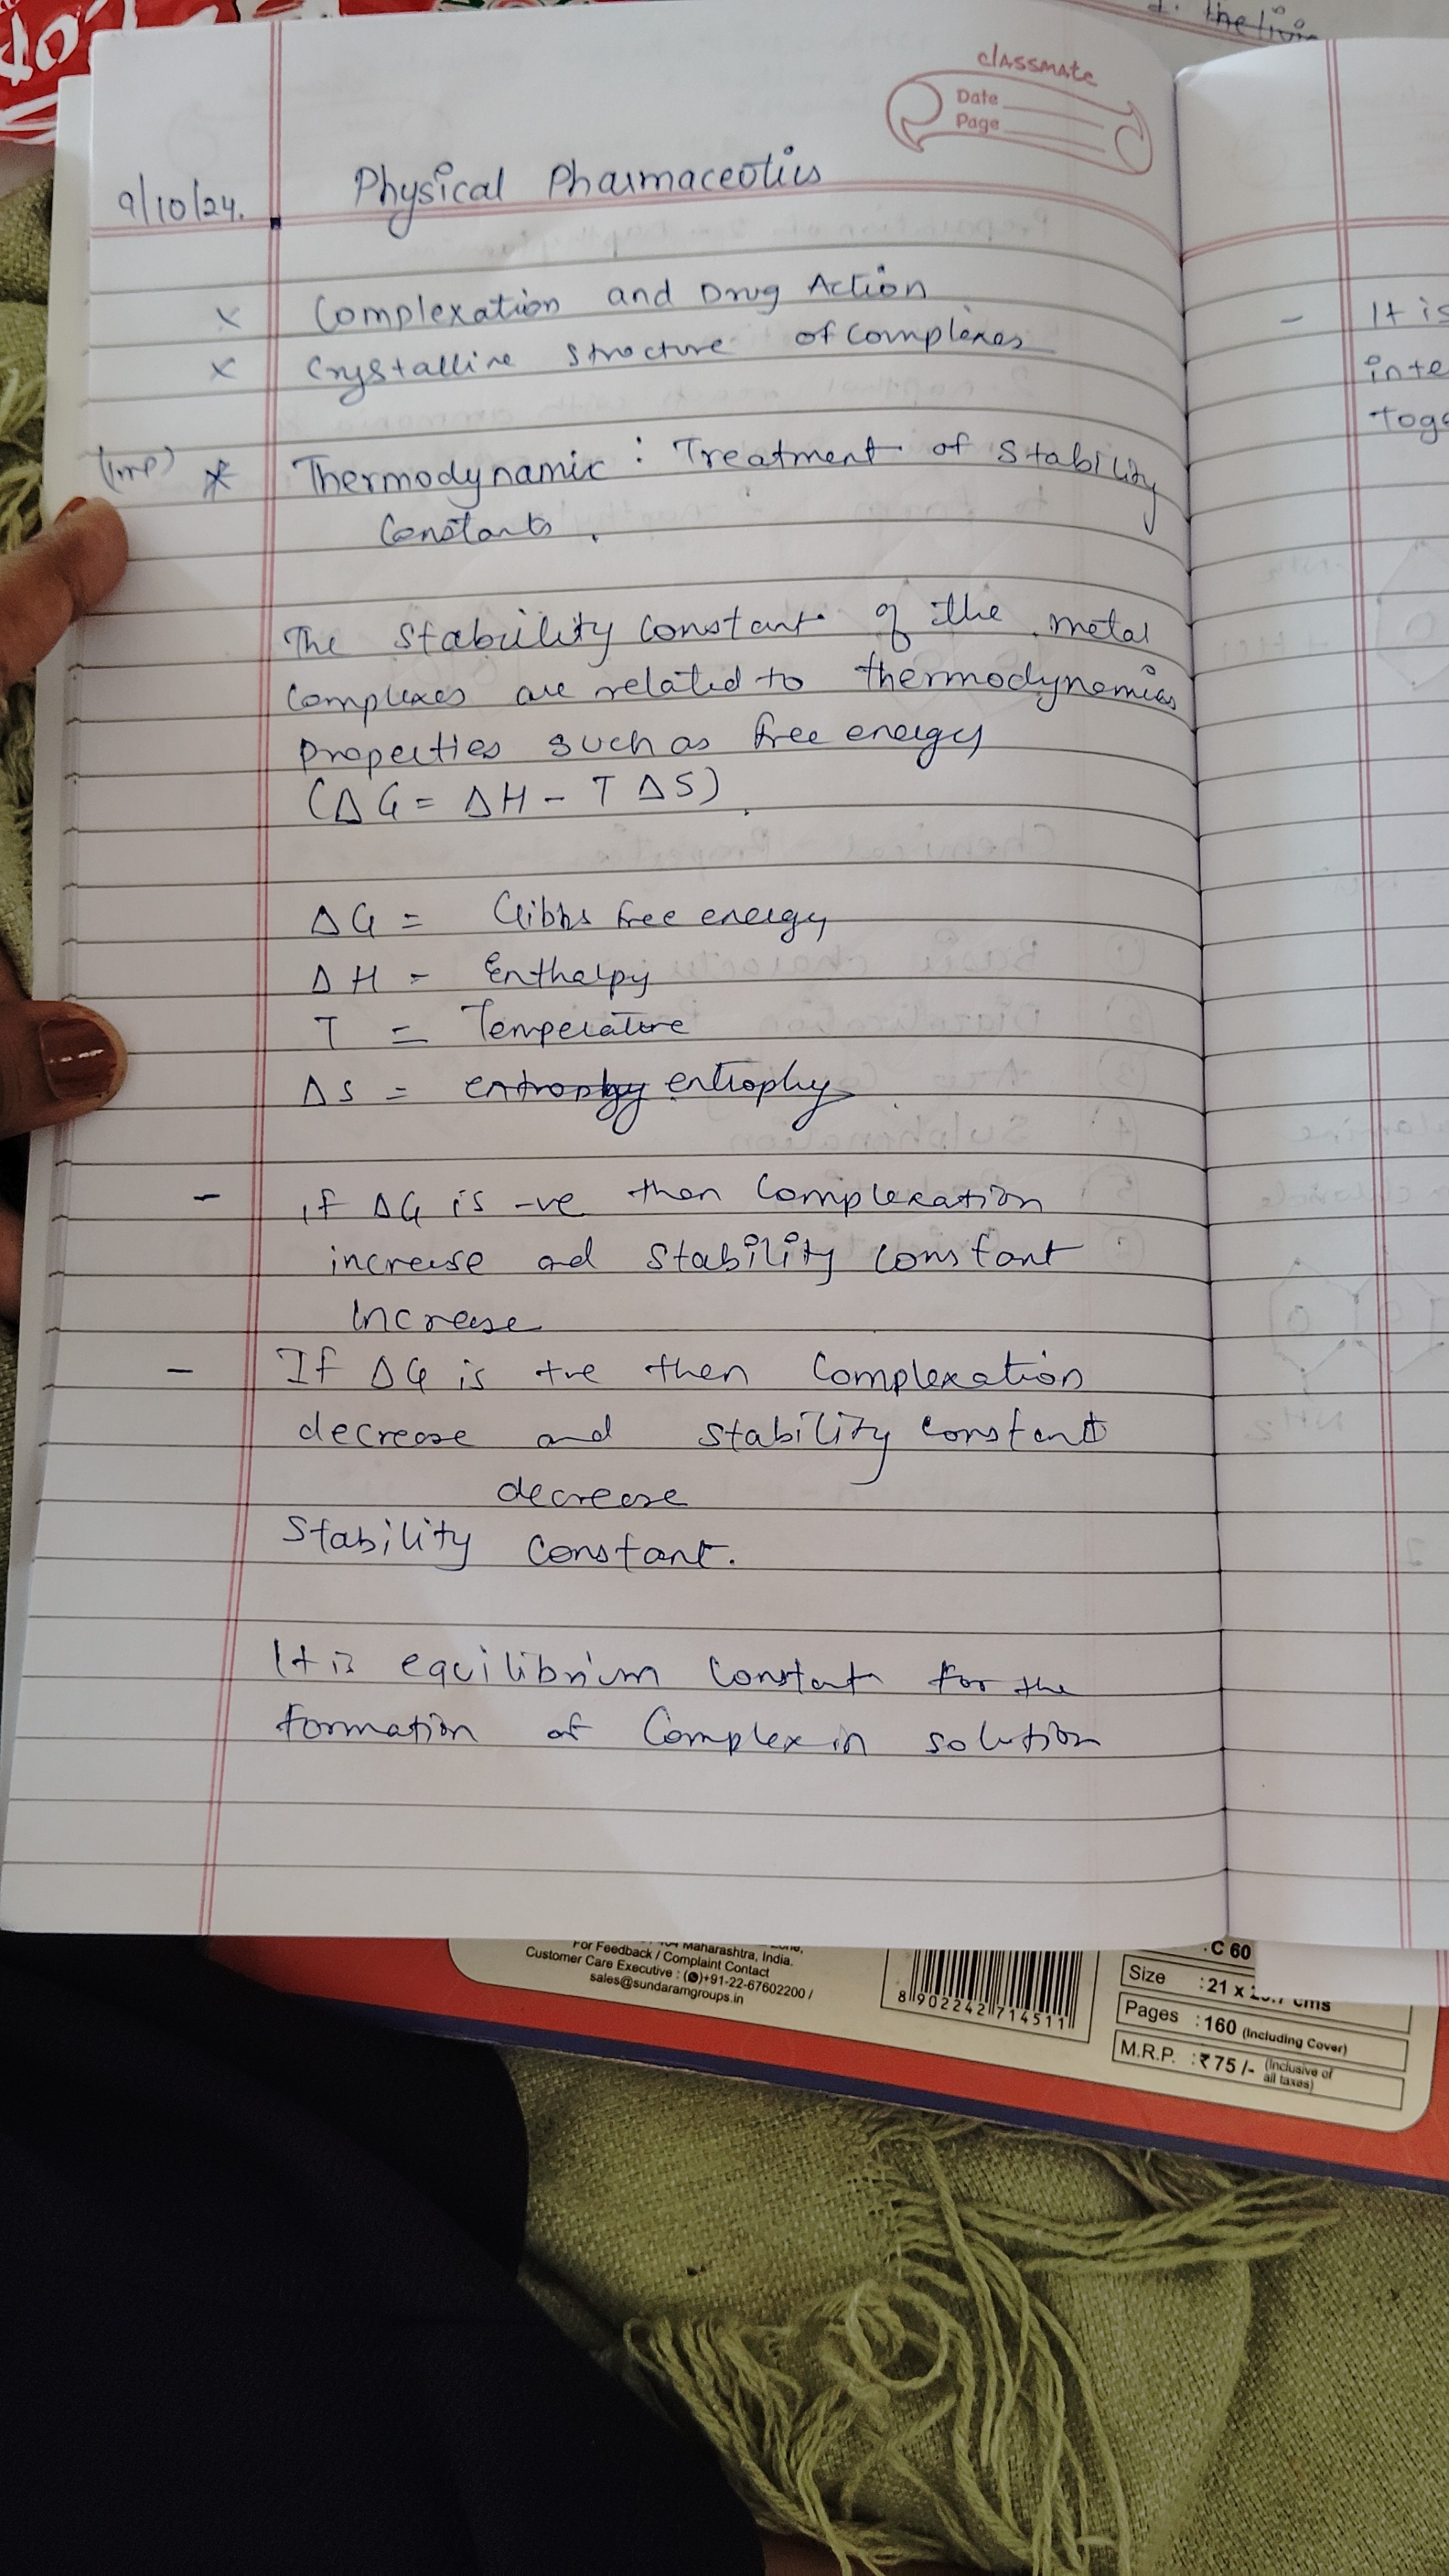 classmate
Date
Page
9/10/24.
Physical Pharmaceotics
x Complexation and Drug Action
x Crystalline Structure of Complexes
(Imp) * Thermodynamic : Treatment of Stability
Constants.
The Stability Constant of the metal
complexes are related to thermodynamics
properties such as free energy
(ΔG = ΔH - T ΔS)
ΔG = Gibbs free energy
ΔH = Enthalpy
T = Temperature
ΔS = entrophy
- if ΔG is -ve then Complexation
increase and Stability constant
increase
- If ΔG is +ve then Complexation
decrease and stability constant
decrease
Stability Constant.
It is equilibrium Constant for the
formation of Complex in solution
- It is
inte
toge
Maharashtra, India.
For Feedback / Complaint Contact
Customer Care Executive : +91-22-67602200 /
sales@sundaramgroups.in
8 902242 714511
C 60
Size : 21 x cms
Pages : 160 (Including Cover)
M.R.P. : ₹ 75/- (Inclusive of
all taxes)